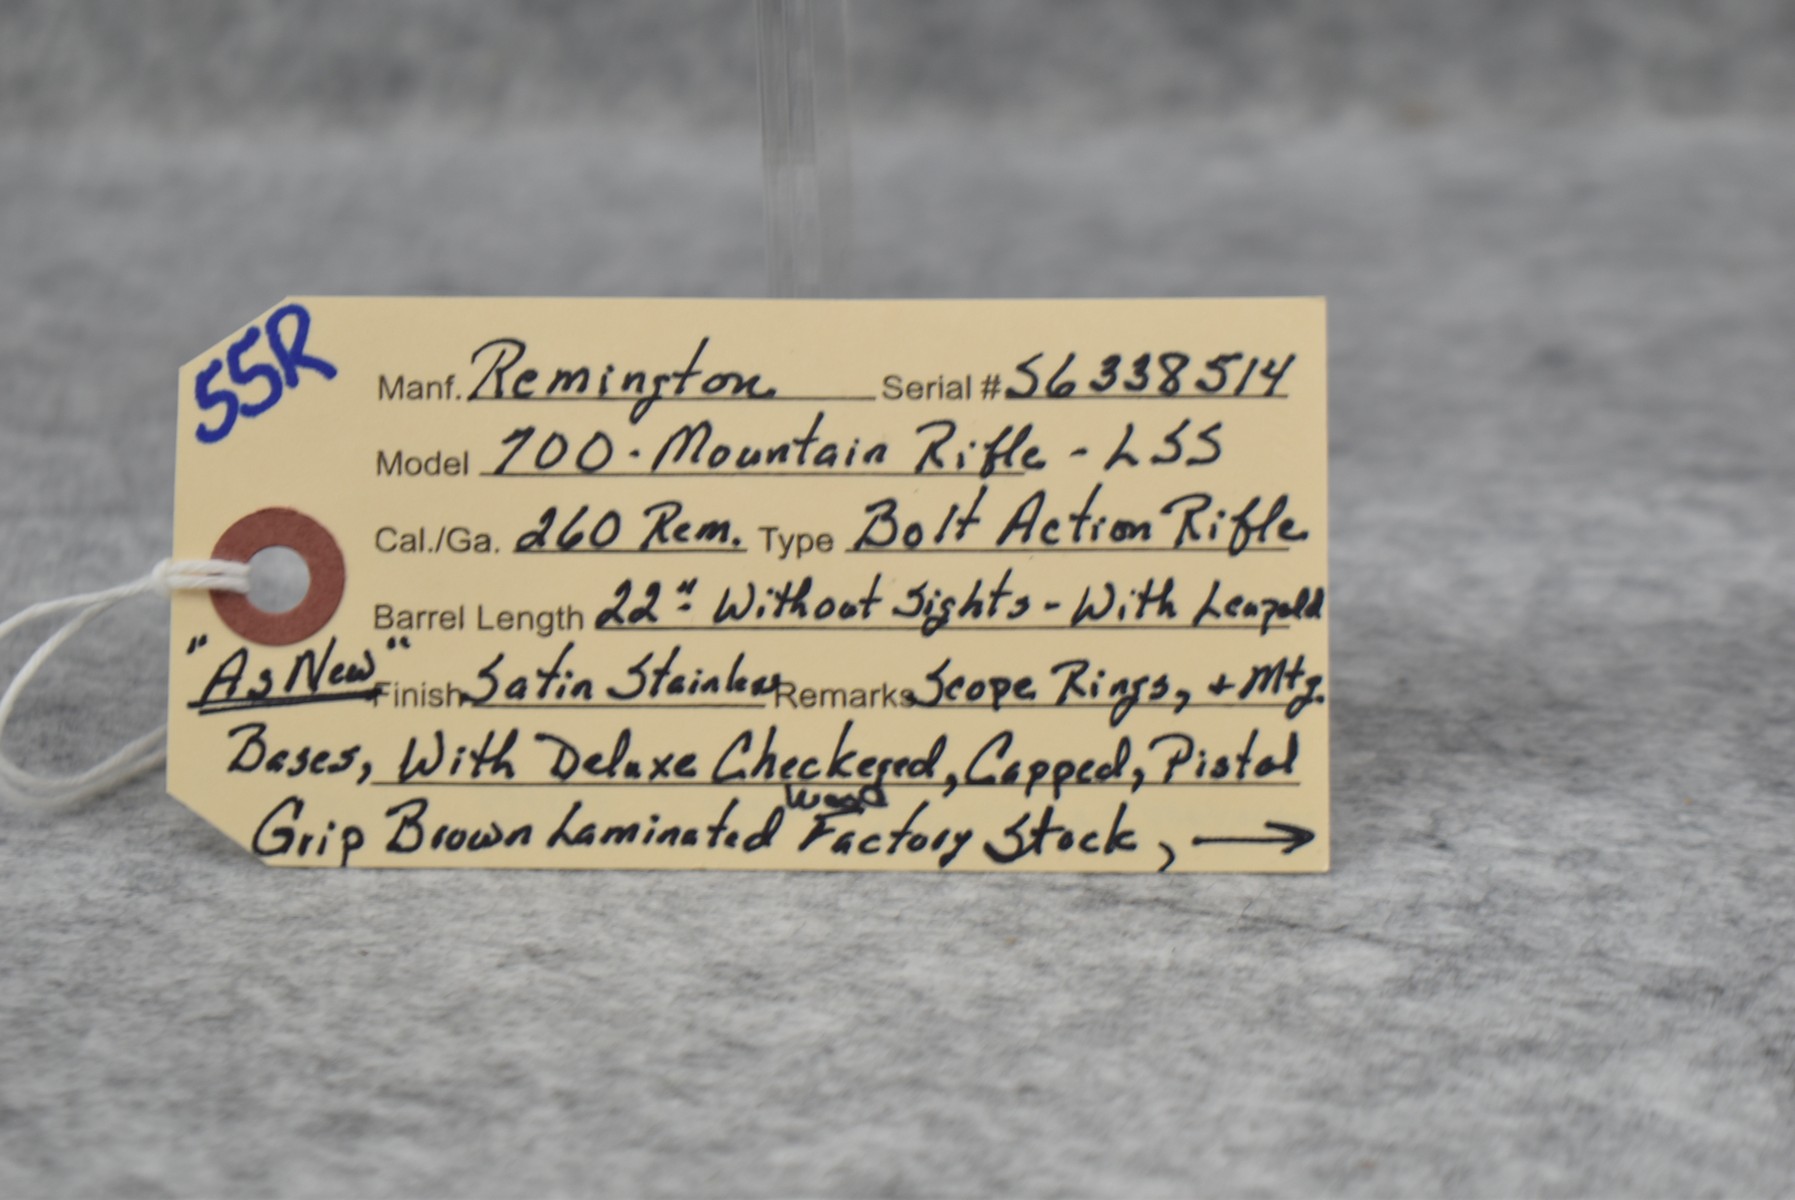 55R
Manf. Remington Serial # S6338514
Model 700 - Mountain Rifle - LSS
Cal./Ga. 260 Rem. Type Bolt Action Rifle
Barrel Length 22" Without Sights - With Leupold
"As New" Finish Satin Stainless Remarks Scope Rings, + Mtg.
Bases, With Deluxe Checkered, Capped, Pistol
Grip Brown Laminated Wood Factory Stock, →